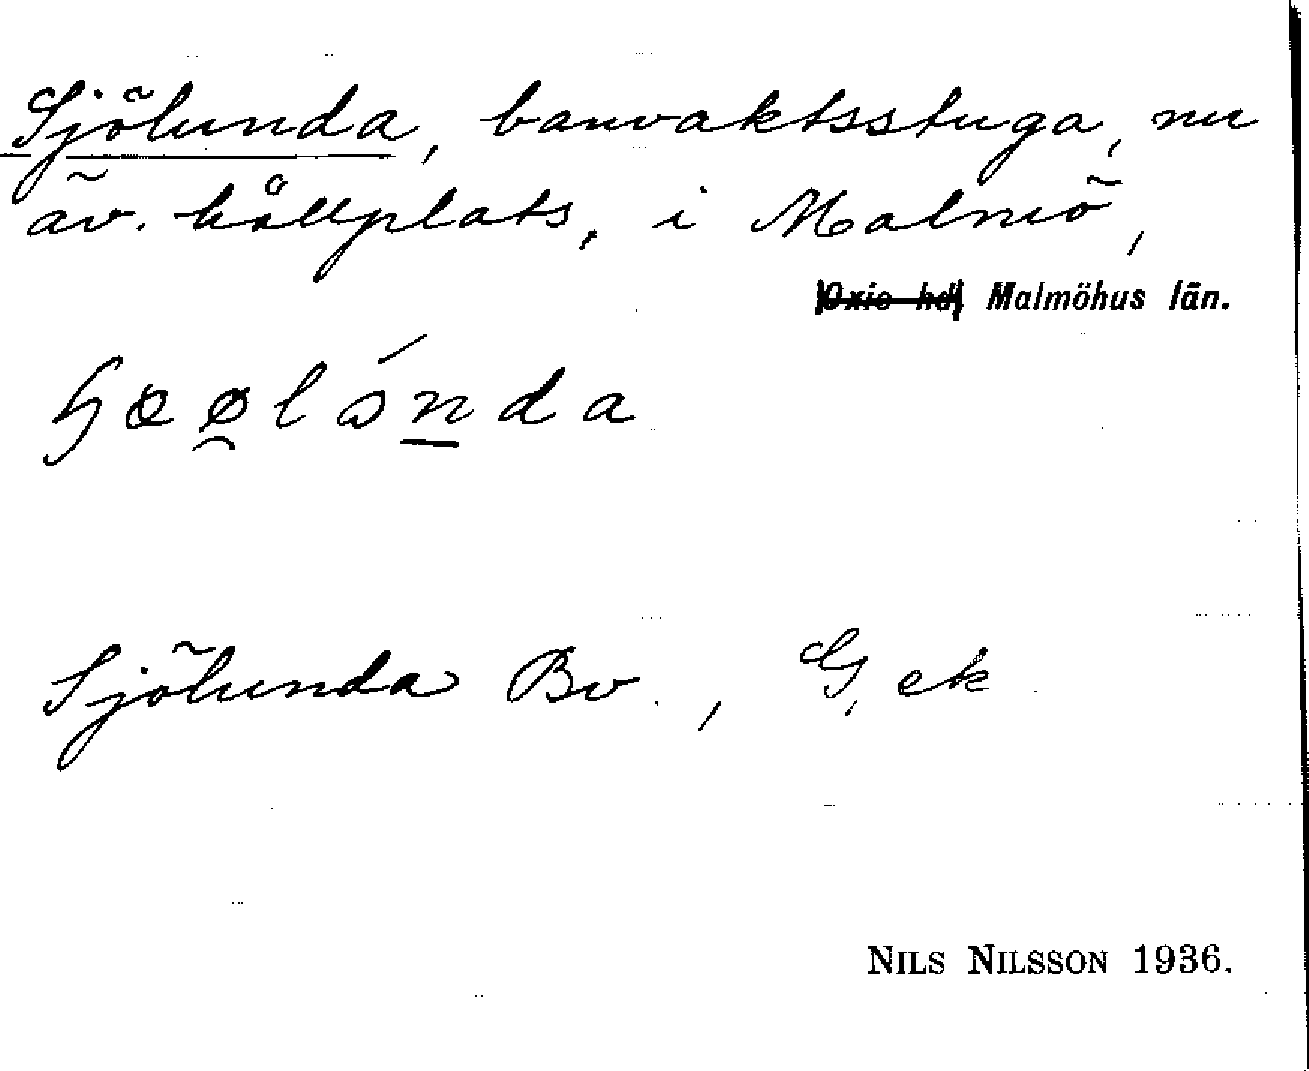 Sjölunda, banvaktsstuga, nu
äv. hållplats, i Malmö,
Oxie hd Malmöhus län.
Sjölunda Bv., G, ek
NILS NILSSON 1936.